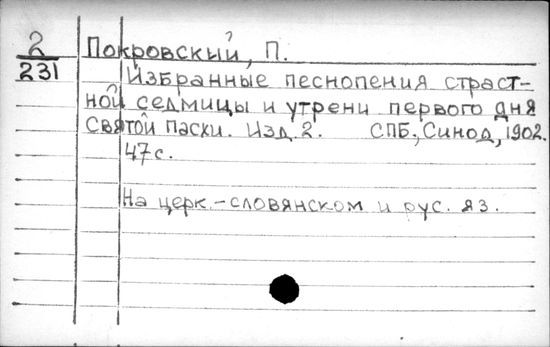 2 Покровский, П.
231 Избранные песнопения страст-
ной седмицы и утрени первого дня
Святой Пасхи. Изд. 2. СПБ, Синод, 1902.
47 с.
На церк.-словянском и рус. яз.